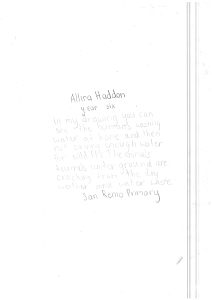 Allira Haddon
year six
In my drawing you can
see the humans using
water at home and then
not saving enough water
for wildlife. The animals
around water ground are
cracking from the dry
weather and water waste
San Remo Primary